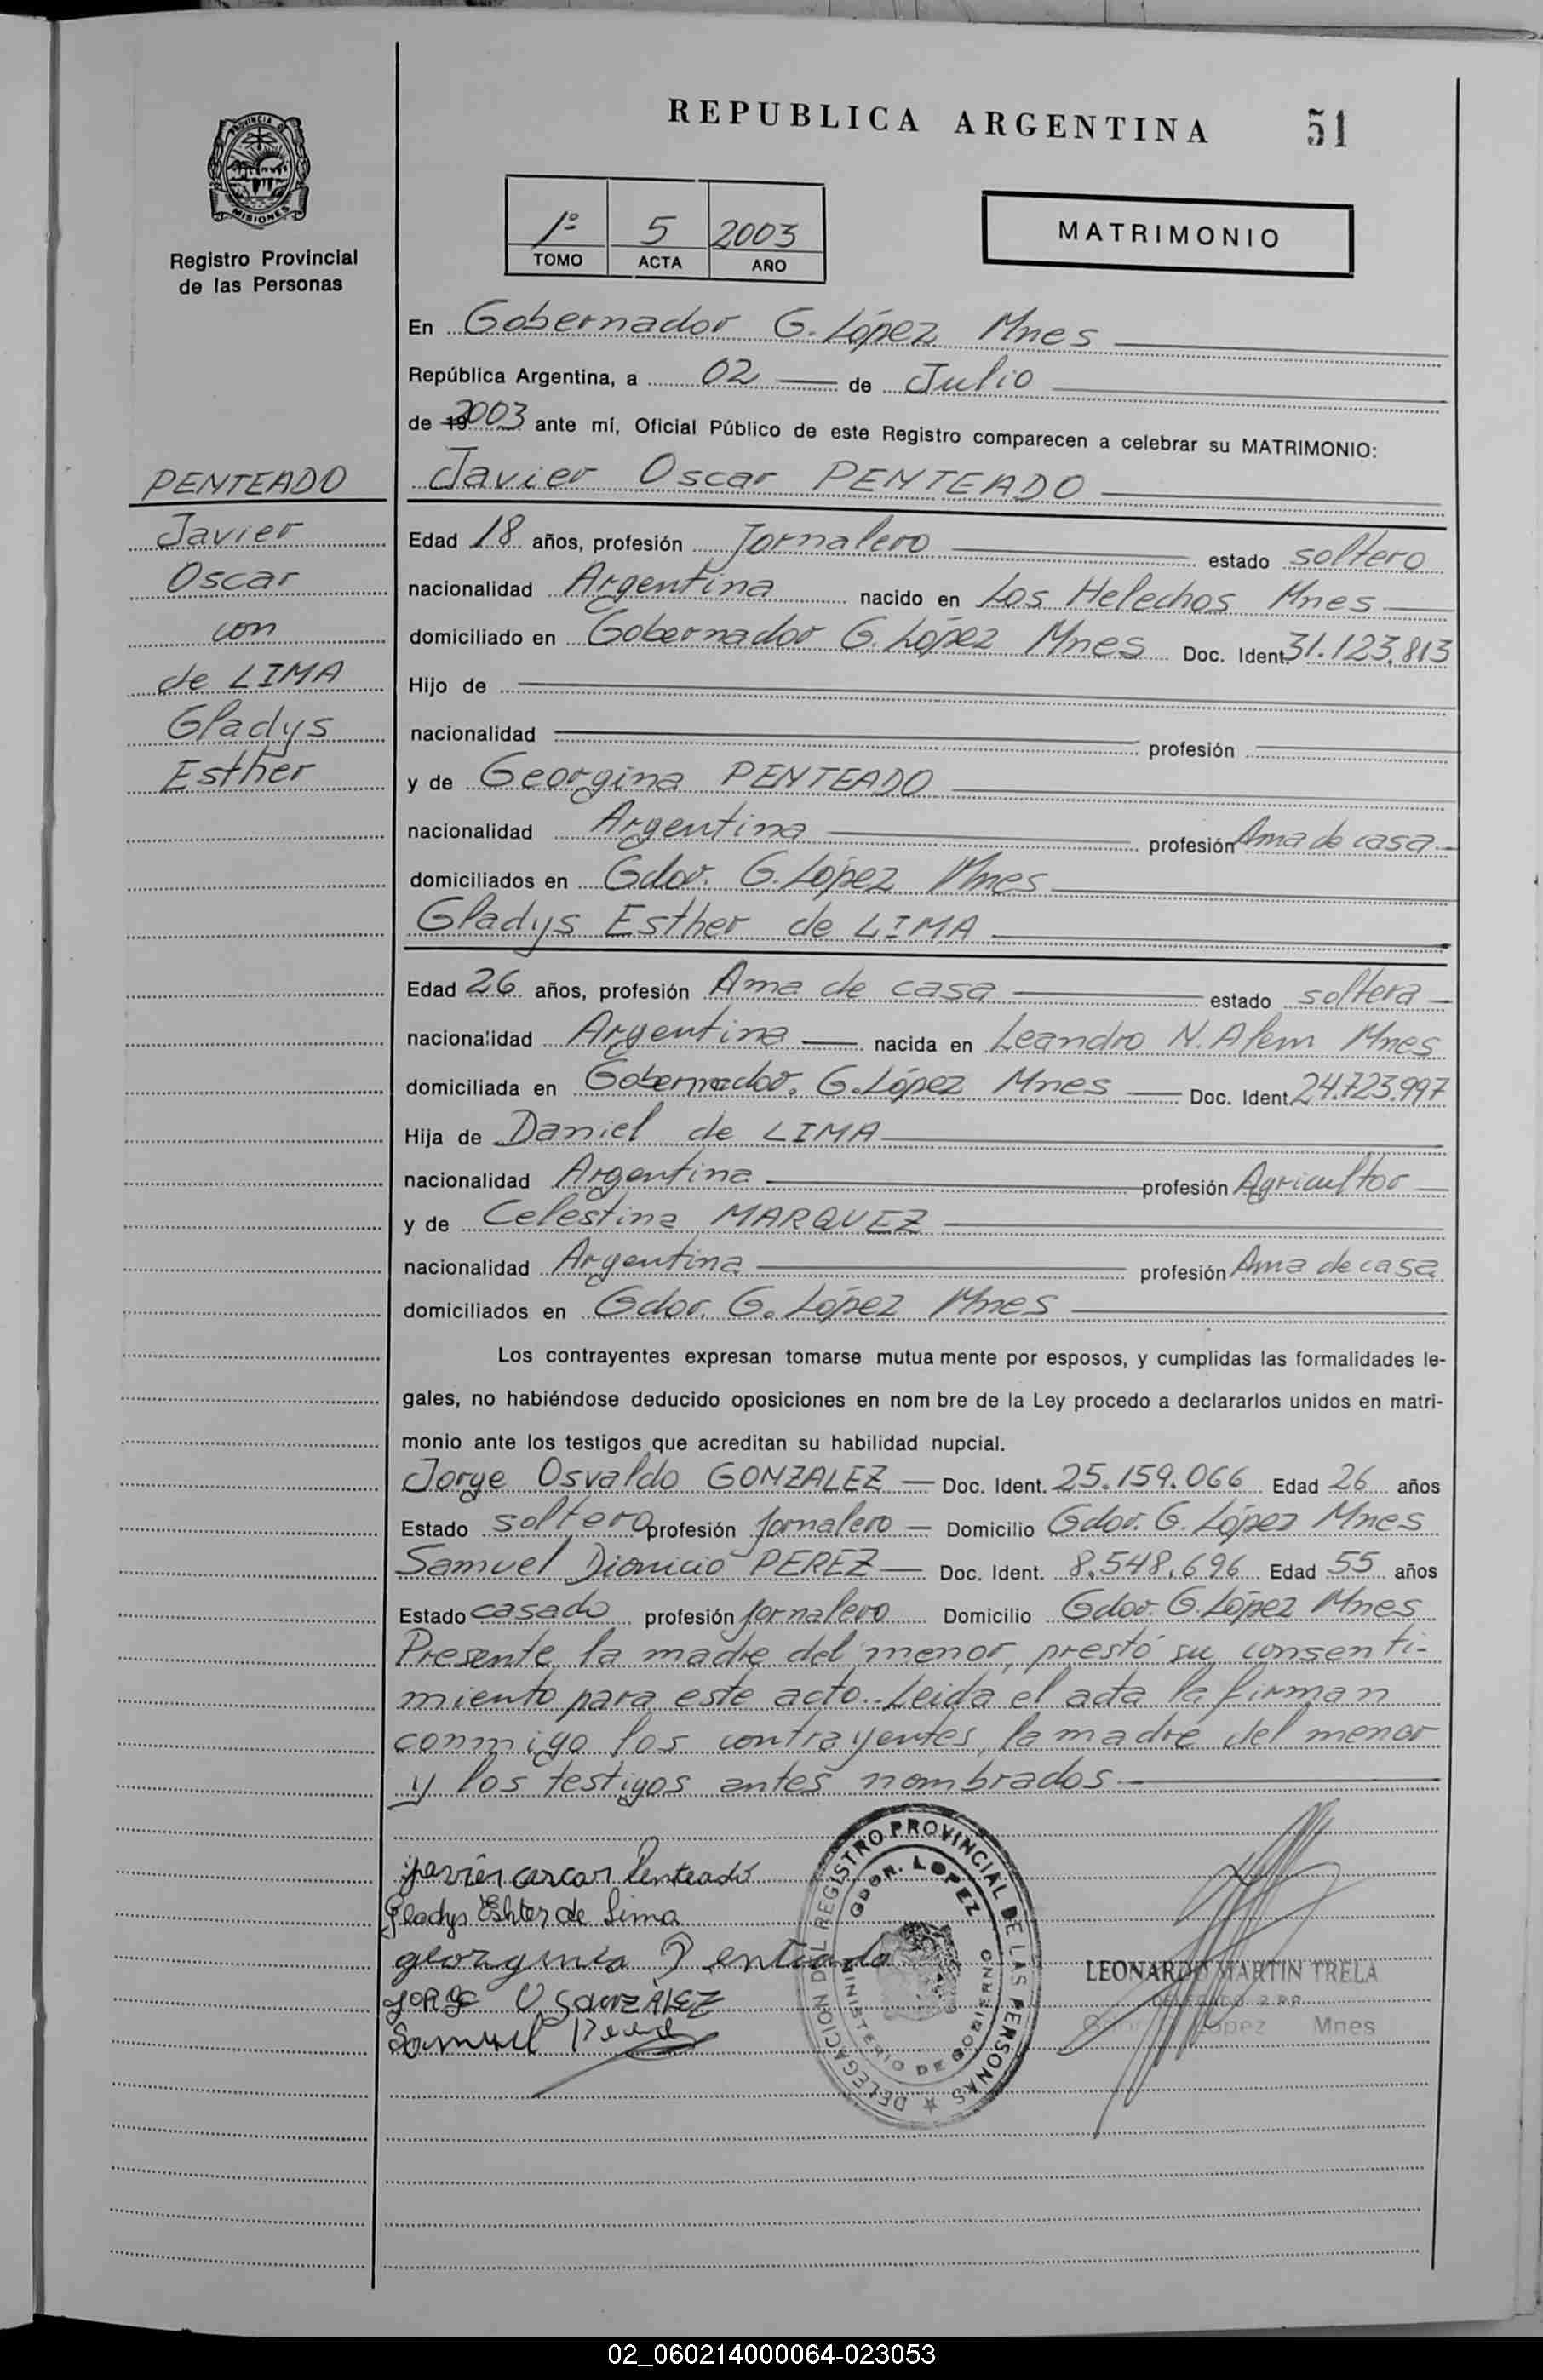 REPUBLICA ARGENTINA 51
PROVINCIA DE
MISIONES
Registro Provincial
de las Personas
1º 5 2003
TOMO ACTA AÑO
MATRIMONIO
En Gobernador G. López Mnes
República Argentina, a 02 de Julio
de 19 2003 ante mí, Oficial Público de este Registro comparecen a celebrar su MATRIMONIO:
PENTEADO
Javier
Oscar
con
de LIMA
Gladys
Esther
Javier Oscar PENTEADO
Edad 18 años, profesión Jornalero estado soltero
nacionalidad Argentina nacido en Los Helechos Mnes
domiciliado en Gobernador G. López Mnes Doc. Ident. 31.123.813
Hijo de
nacionalidad profesión
y de Georgina PENTEADO
nacionalidad Argentina profesión Ama de casa
domiciliados en Gdor. G. López Mnes
Gladys Esther de LIMA
Edad 26 años, profesión Ama de casa estado soltera
nacionalidad Argentina nacida en Leandro N. Alem Mnes
domiciliada en Gobernador. G. López Mnes Doc. Ident. 24.723.997
Hija de Daniel de LIMA
nacionalidad Argentina profesión Agricultor
y de Celestina MARQUEZ
nacionalidad Argentina profesión Ama de casa
domiciliados en Gdor. G. López Mnes
Los contrayentes expresan tomarse mutua mente por esposos, y cumplidas las formalidades le-
gales, no habiéndose deducido oposiciones en nom bre de la Ley procedo a declararlos unidos en matri-
monio ante los testigos que acreditan su habilidad nupcial.
Jorge Osvaldo GONZALEZ Doc. Ident. 25.159.066 Edad 26 años
Estado soltero profesión Jornalero Domicilio Gdor. G. López Mnes
Samuel Dionicio PEREZ Doc. Ident. 8.548.696 Edad 55 años
Estado casado profesión Jornalero Domicilio Gdor. G. López Mnes
Presente la madre del menor, prestó su consenti-
miento para este acto.- Leida el acta la firman
conmigo los contrayentes, la madre del menor
y los testigos antes nombrados
Javier oscar Penteado
Gladys Eshter de Lima
georgina Penteado
JORGE O. GONZALEZ
Samuel
DELEGACION DEL REGISTRO PROVINCIAL DE LAS PERSONAS
GDOR. LOPEZ
MINISTERIO DE GOBIERNO
LEONARDO MARTIN TRELA
López Mnes
02_060214000064-023053